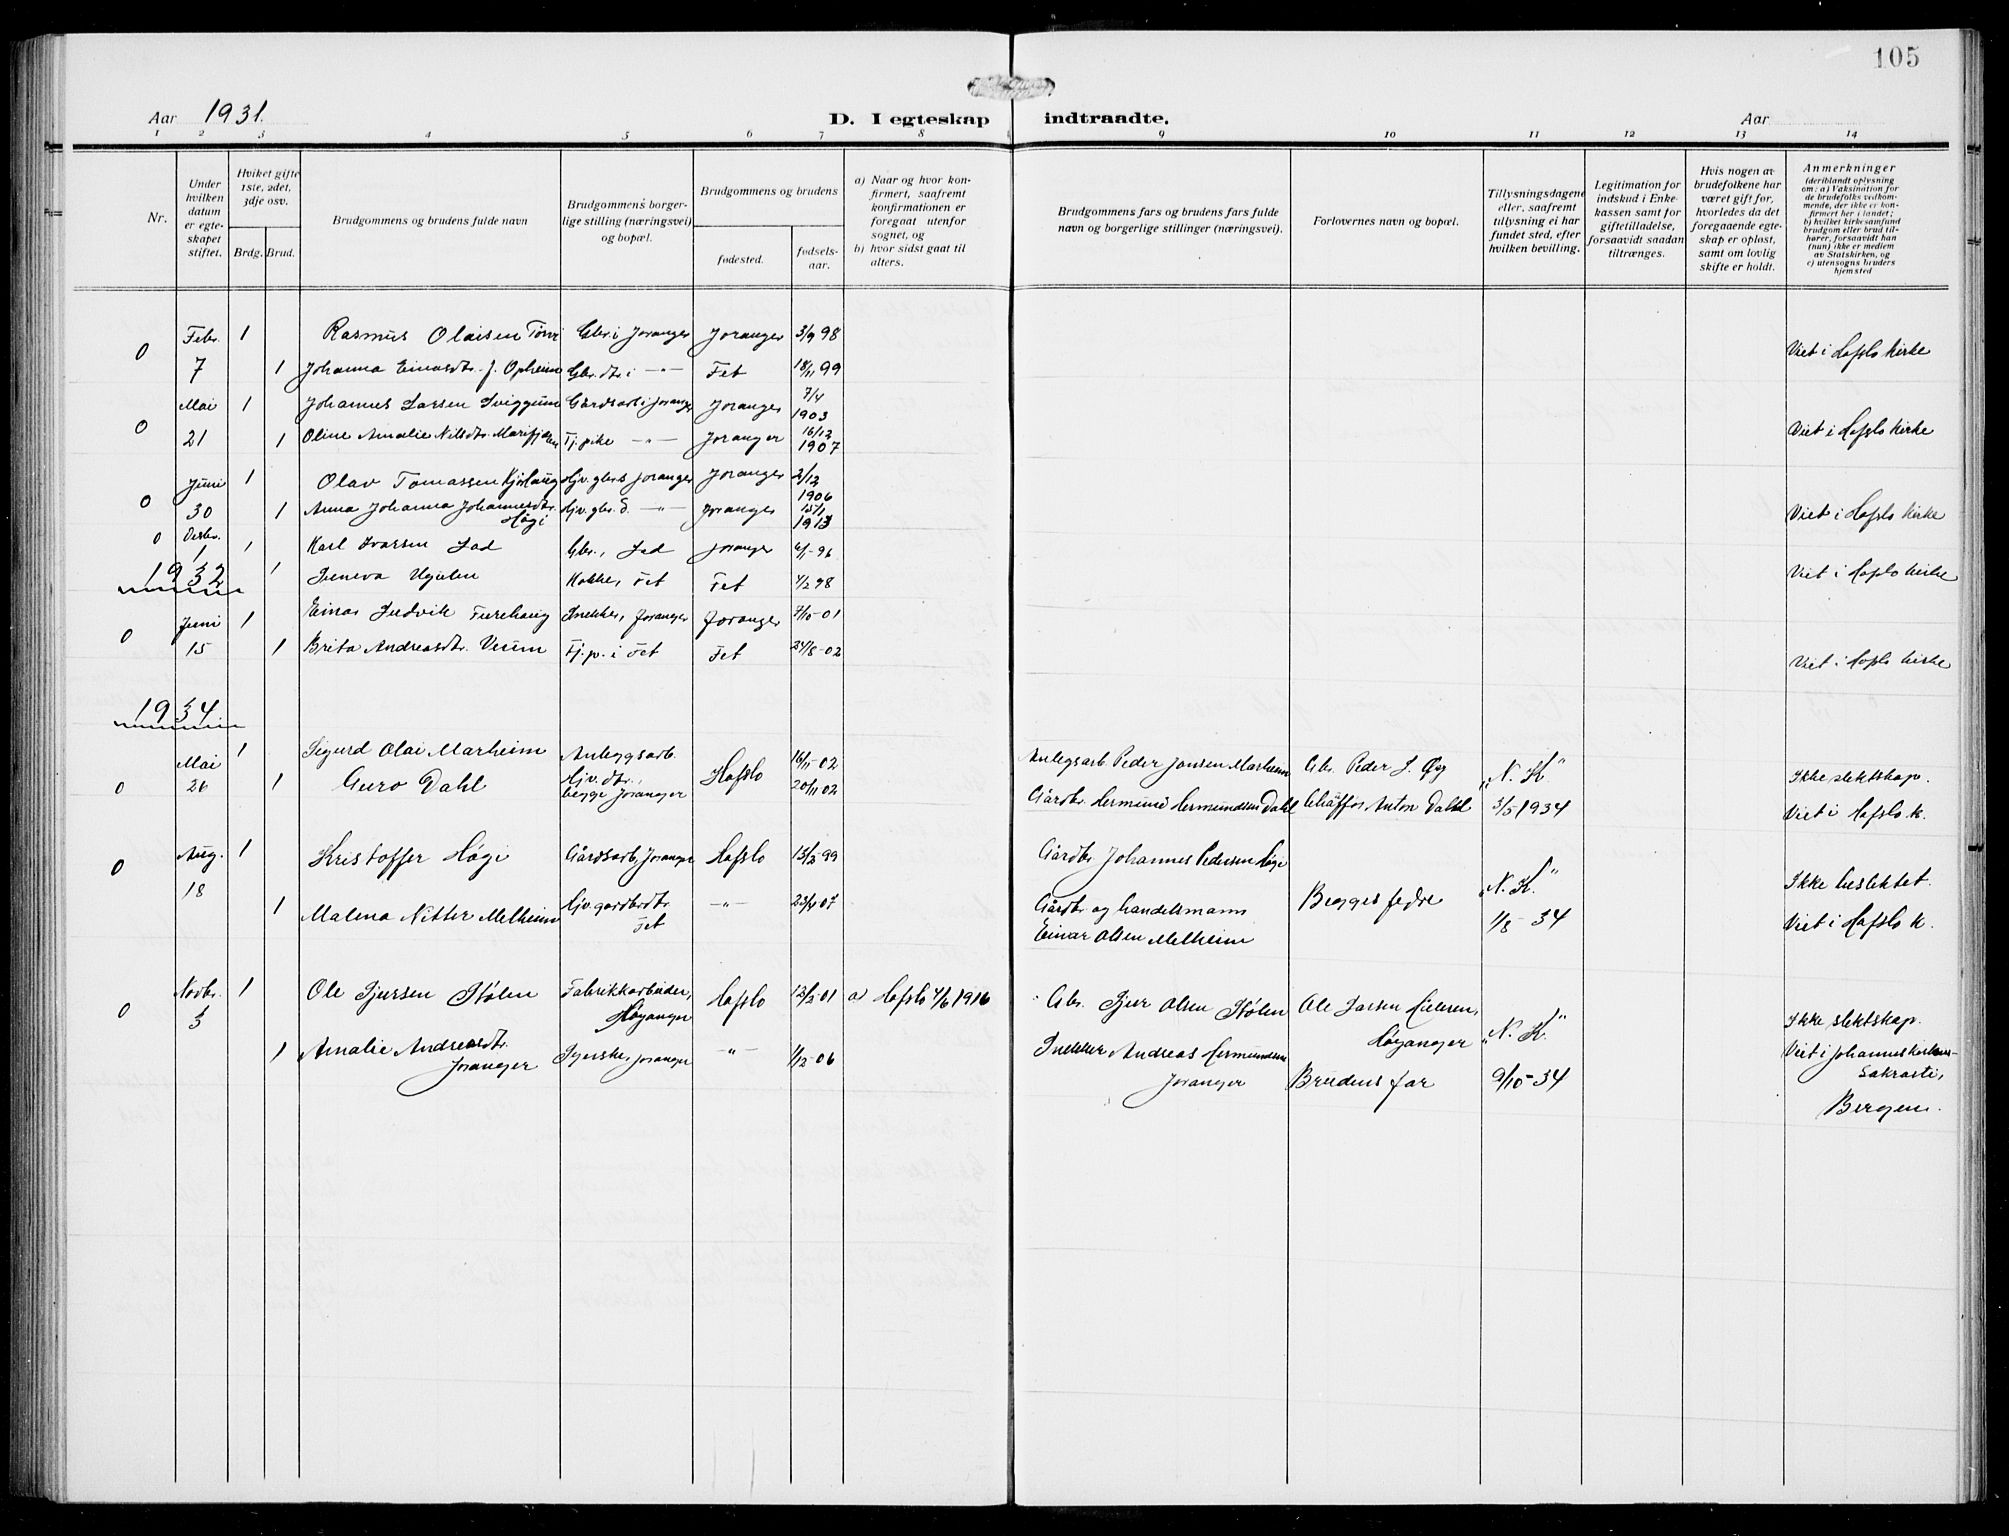 105
Aar 1931.
D. I egteskap indtraadte.
Aar
1 2 3 4 5 6 7 8 9 10 11 12 13 14
Nr.
Under
hvilken
datum
er egte-
skapet
stiftet.
Hvilket gifte
1ste, 2det,
3dje osv.
Brdg. Brud.
Brudgommens og brudens fulde navn
Brudgommens borger-
lige stilling (næringsvei)
og bopæl.
Brudgommens og brudens
fødested.
fødsels-
aar.
a) Naar og hvor kon-
firmert, saafremt
konfirmationen er
foregaat utenfor
sognet, og
b) hvor sidst gaat til
alters.
Brudgommens fars og brudens fars fulde
navn og borgerlige stillinger (næringsvei).
Forlovernes navn og bopæl.
Tillysningsdagene
eller, saafremt
tillysning ei har
fundet sted, efter
hvilken bevilling.
Legitimation for
indskud i Enke-
kassen samt for
giftetilladelse,
forsaavidt saadan
tiltrænges.
Hvis nogen av
brudefolkene har
været gift før,
hvorledes da det
foregaaende egte-
skap er opløst,
samt om lovlig
skifte er holdt.
Anmerkninger
(deriblandt oplysning
om: a) Vaksination for
de brudefolks vedkom-
mende, der ikke er kon-
firmert her i landet;
b) hvilket kirkesamfund
brudgom eller brud til-
hører, forsaavidt han
(hun) ikke er medlem
av Statskirken, og
c) utensogns bruders
hjemsted
0 Febr. 1 Rasmus Olaisen Gbr. i Joranger Joranger 3/9 98
7 1 Johanna Einarsdtr. f. Opheim Gbr. dtr. i —"— Fet 18/11 99 Viet i Hafslo kirke
0 Mai 1 Johannes Larsen Sviggum Gårdsarb. i Joranger Joranger 7/4 1903
21 1 Oline Amalie Nilsdtr. Marifjæren Tj. pike —"— Joranger 16/12 1907 Viet i Hafslo kirke
0 Juni 1 Olav Tomassen Kjørhaug Hjv. gbr. s Joranger Joranger 2/12 1906
30 1 Anna Johanna Johannesdtr. Høgi Hjv. gbr. d. —"— Joranger 15/1 1913 Viet i Hafslo kirke
0 Desbr. 1 1 Karl Ivarsen Lad Gbr., Lad Joranger 6/1-96
1932
1 Kokke, Fet Fet 4/2 98 Viet i Hafslo kirke
0 Juni 1 Einar Ludvik Furehaug Snekker, Joranger Joranger 7/10-01
15 1 Brita Andreasdtr. Veum Tj. p. i Fet Fet 24/8-02 Viet i Hafslo kirke
1934
0 Mai 26 1 Sigurd Olai Marheim Anleggsarb. Hafslo 16/11-02 Anlegsarb Peder Jansen Marheim Gbr. Peder J. Øy "N. K." Ikke slektskap.
1 Guro Dahl Hjv. dtr., begge Joranger 20/11 02 Gårdbr. Hermund Hermundsen Dahl Chåffør Anton Dahl 3/5 1934 Viet i Hafslo k.
0 Aug. 18 1 Kristoffer Høgi Gårdsarb, Joranger Hafslo 15/3-99 Gårdbr. Johannes Pedersen Høgi "N. K." Ikke beslektet.
1 Malena Nitter Melheim Hjv. gardbrdtr. Fet —"— 23/4-07 Gårdbr. og handelsmann
Einar Olsen Melheim Begges fedre 1/8-34 Viet i Hafslo k.
0 Novbr. 3 1 Ole Sjursen Stølen Fabrikkarbeider, Høyanger Hafslo 12/3-01 a) Hafslo 4/6 1916 Gbr. Sjur Olsen Stølen Ole Larsen
Høyanger "N. K." Ikke slektskap.
1 Amalie Andreasdtr. Joranger Syerske, Joranger —"— 1/12-06 Snekker Andreas Hermundsen
Joranger Brudens far 9/10-34 Viet i Johanneskirkens
Sakrasti,
Bergen.